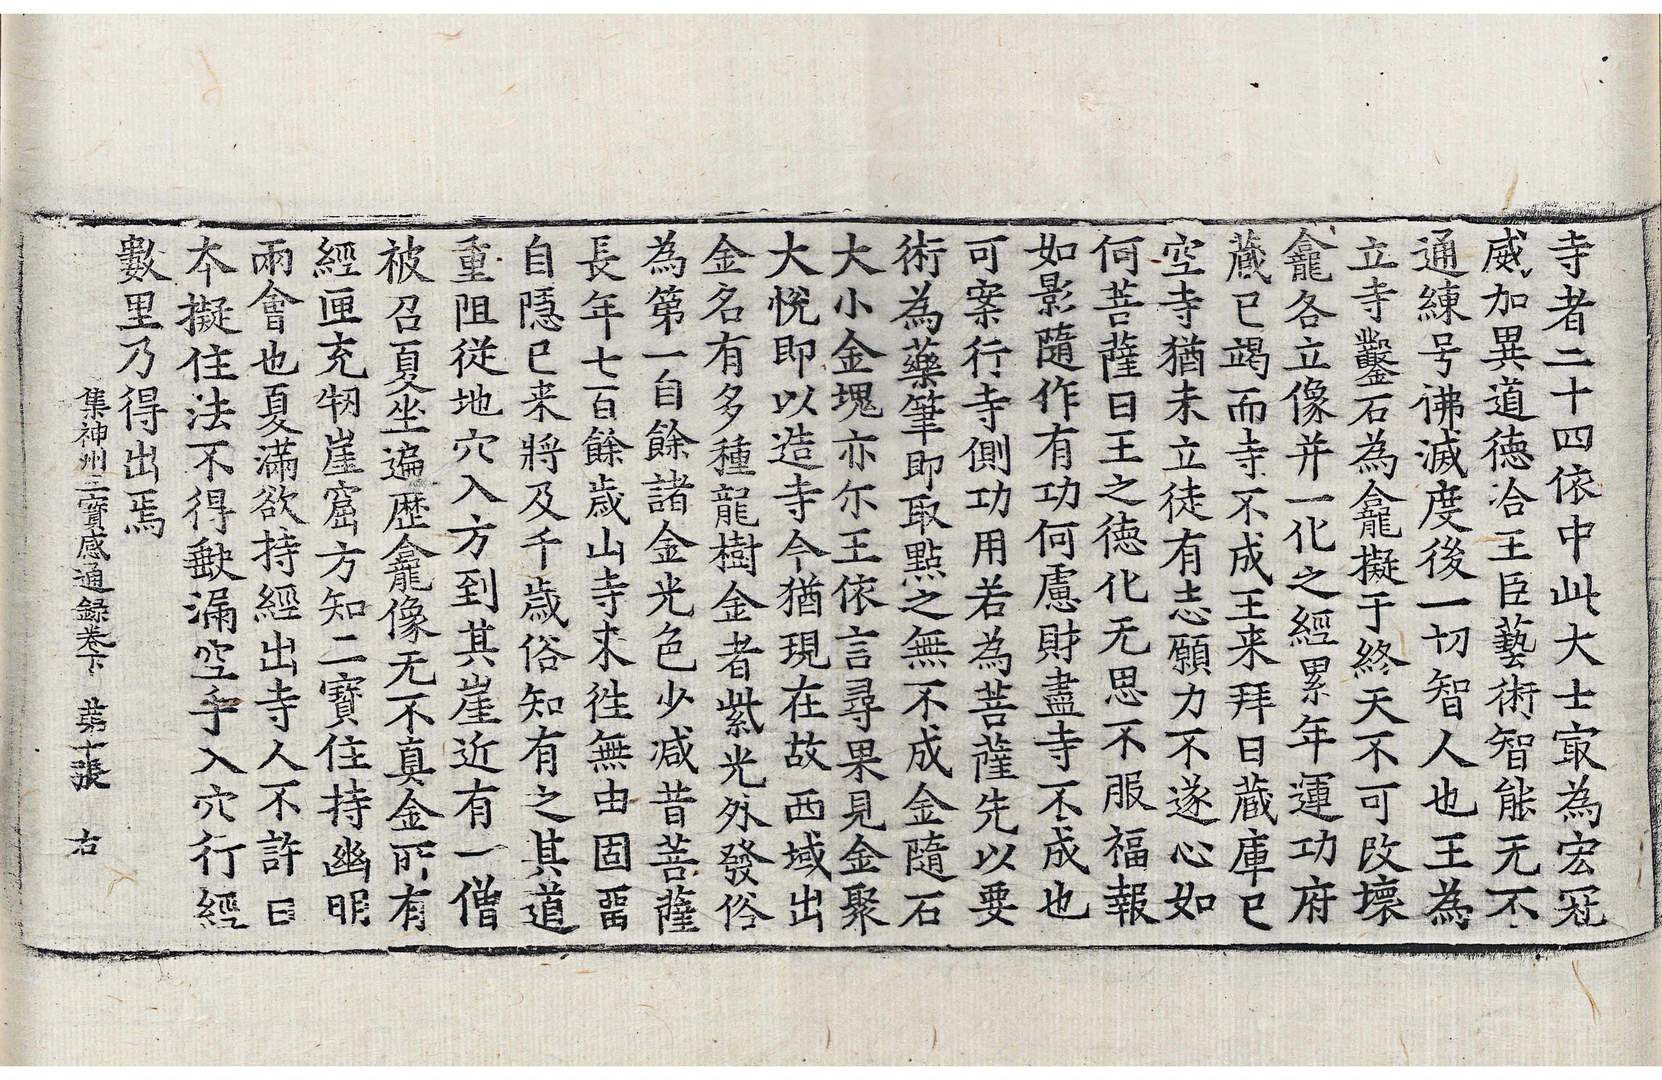 寺者二十四依中此大士㝡為宏冠
威加異道德洽王臣藝術智能无不
通練号彿滅度後一切智人也王為
立寺鑿石為龕擬于終天不可改壞
龕各立像并一化之經累年運功府
藏已竭而寺不成王来拜日藏庫已
空寺猶未立徒有志願力不遂心如
何菩薩曰王之德化无思不服福報
如影隨作有功何慮財盡寺不成也
可案行寺側功用若為菩薩先以要
術為藥筆即取㸃之無不成金隨石
大小金塊亦尓王依言尋果見金聚
大悅即以造寺今猶現在故西域出
金名有多種龍樹金者紫光外發俗
為第一自餘諸金光色少减昔菩薩
長年七百餘歳山寺求徃無由固畱
自隱已来將及千歳俗知有之其道
重阻從地穴入方到其崖近有一僧
被召夏坐遍歷龕像无不真金所有
經匣充牣崖窟方知二寶住持幽明
兩會也夏滿欲持經出寺人不許曰
本擬住法不得𡙇漏空手入穴行經
數里乃得出焉
集神州三寶感通録卷下 苐十張 右